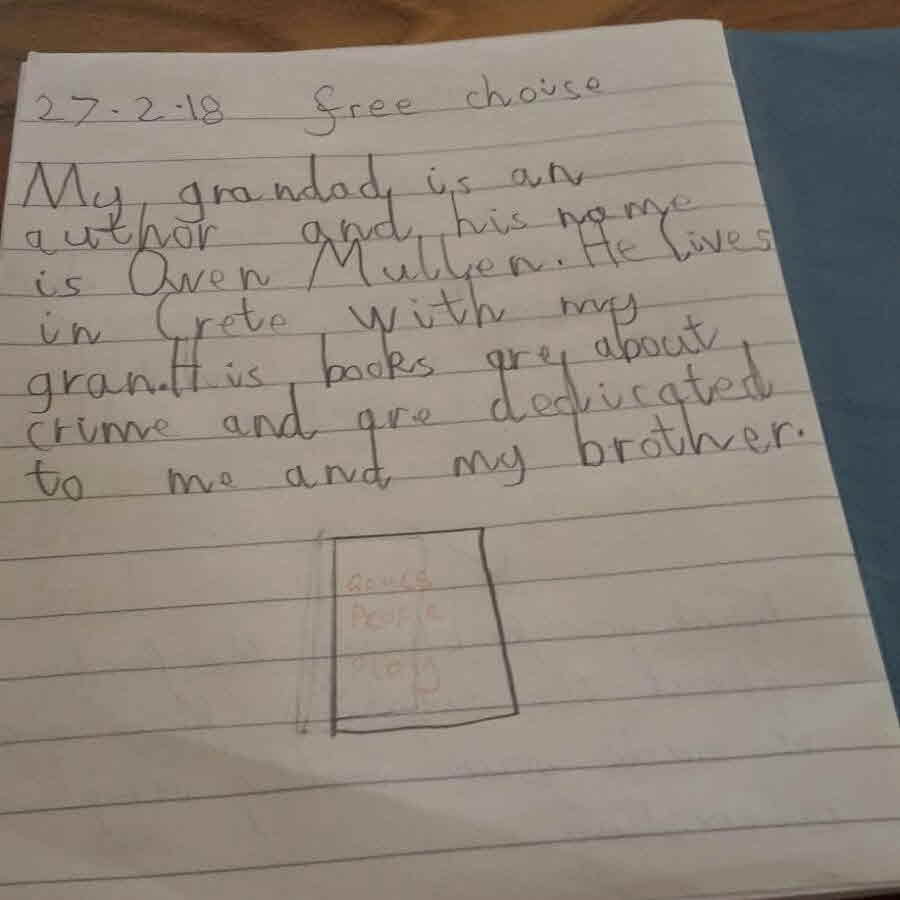 27.2.18 free choise
My grandad is an
author and his name
is Owen Mullen. He lives
in Crete with my
gran. His books are about
crime and are dedicated
to me and my brother.
People
play